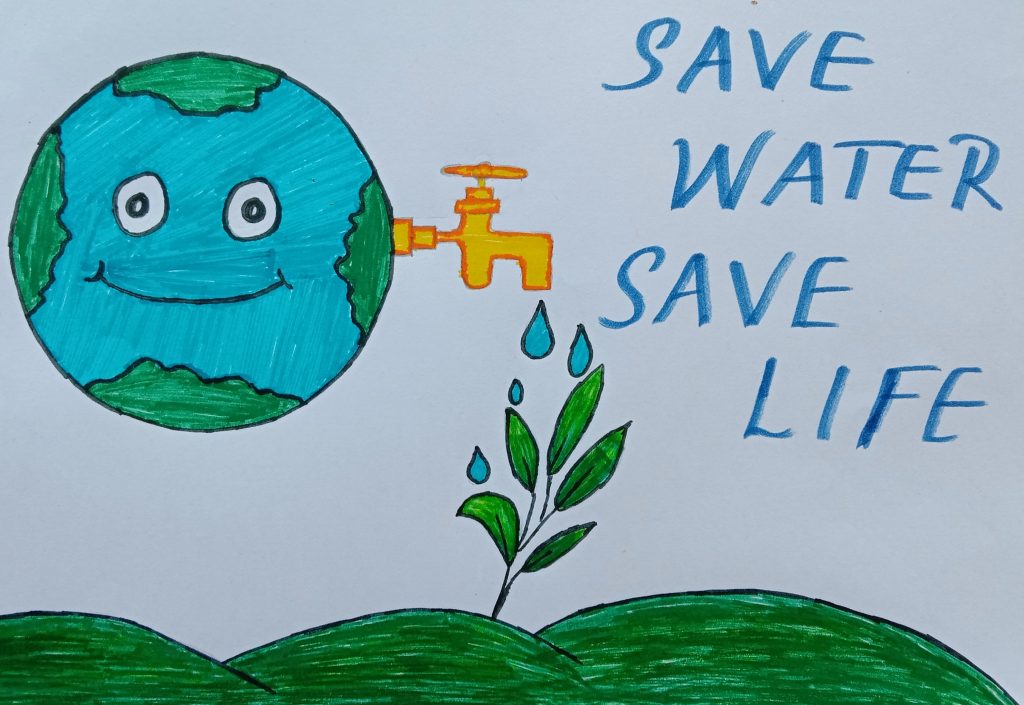 SAVE
WATER
SAVE
LIFE